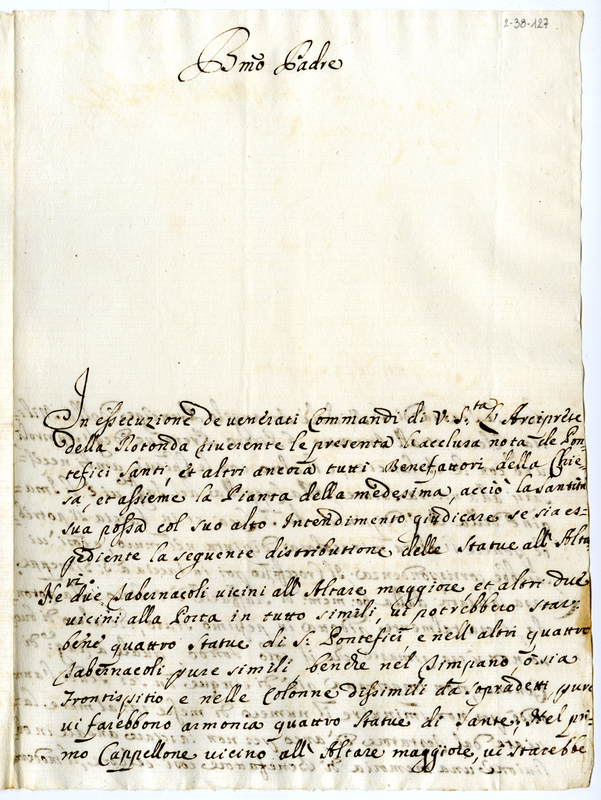 2-38-127
Bmo Padre
In essecuzione de venerati Commandi di V. S.tà l'Arciprete
della Rotonda riverente le presenta l'acclusa nota de Pon
tefici Santi, et altri ancora tutti Benefattori della Chie
sa, et assieme la Pianta della medesima, acciò la Santità
sua possa col suo alto Intendimento giudicare se sia es-
pediente la seguente distributione delle Statue all' Alta
vi.
Ne due Tabernacoli vicini all' Altare maggiore, et altri due
vicini alla Porta in tutto simili, vi potrebbero star
bene quattro Statue di S. Pontefici, e nell' altri quattro
Tabernacoli pure simili benche nel Timpano, ò sia
Frontispitio, e nelle Colonne dissimili da sopradetti, pure
vi farebbono armonia quattro Statue di Sante, Nel pri-
mo Cappellone vicino all' Altare maggiore, vi starebbe